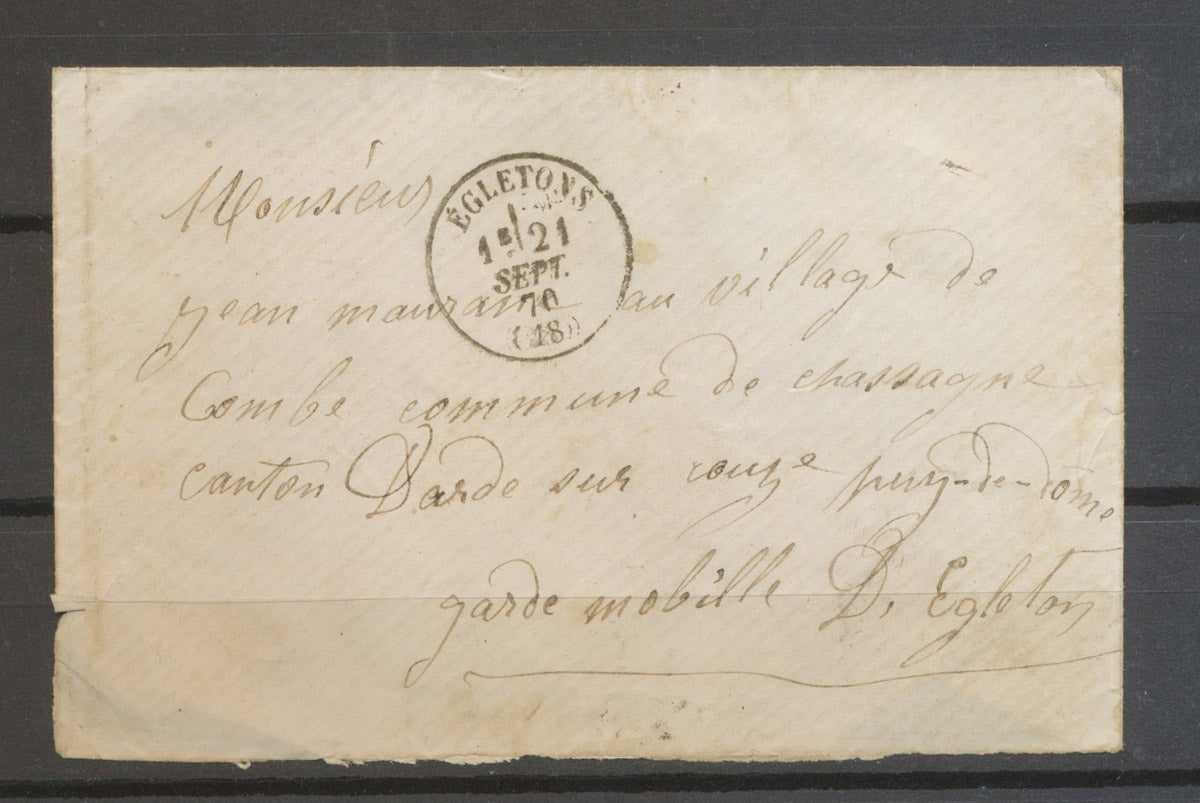 Monsieur
ÉGLETONS
1E 21
SEPT.
70
(18)
jean mauranne au village de
Combe commune de chassagne
canton Darde sur couze puy-de-dome
garde mobille D. Egleton